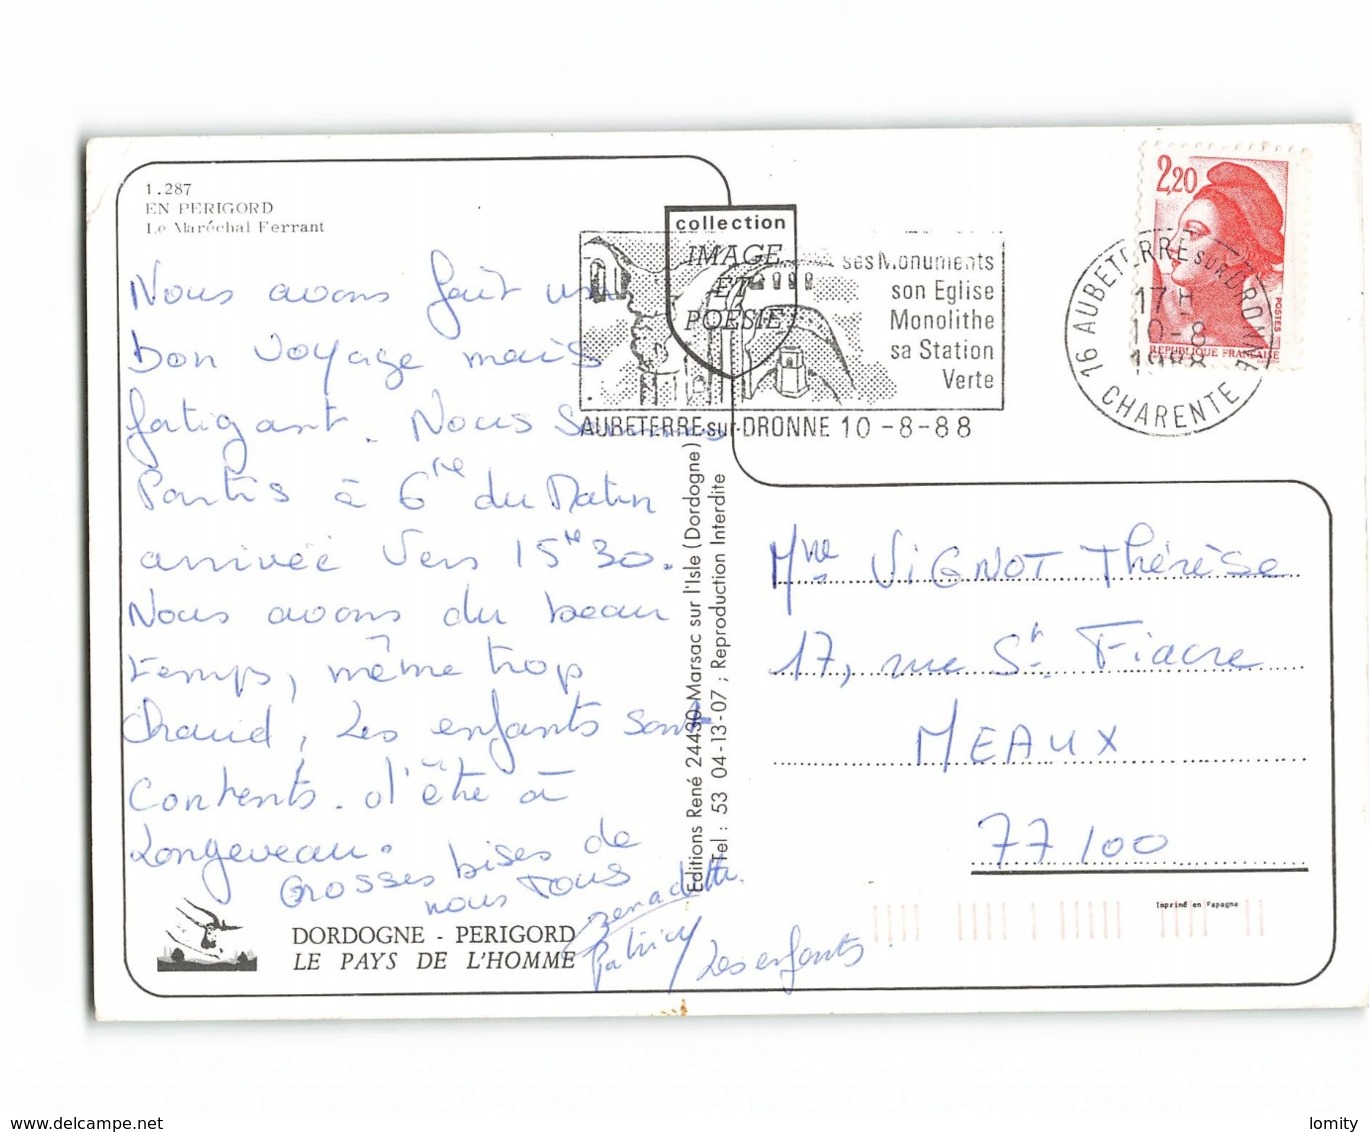 1.287
EN PERIGORD
Le Maréchal Ferrant
Nous avons fait un
bon voyage mais
fatigant. Nous Sommes
Partis à 6 re du Matin
arrivée Vers 15 H 30.
Nous avons du beau
temps, même trop
chaud, Les enfants sont
Contents. d'être à
Longeveau.
Grosses bises de
nous Tous
Bernadette
Patrick
Les enfants
DORDOGNE - PERIGORD
LE PAYS DE L'HOMME
collection
IMAGE
ET
POESIE
ses Monuments
son Eglise
Monolithe
sa Station
Verte
AUBETERRE-sur-DRONNE 10-8-88
Editions René 24430 Marsac sur l'Isle (Dordogne)
Tel : 53 04-13-07 ; Reproduction Interdite
2,20
POSTES
REPUBLIQUE FRANÇAISE
16 AUBETERRE SUR DRONNE
17 H
10-8
1988
CHARENTE
Mme VIGNOT Thérèse
17, rue St. Fiacre
MEAUX
77100
Imprimé en Espagne
www.delcampe.net
lomity